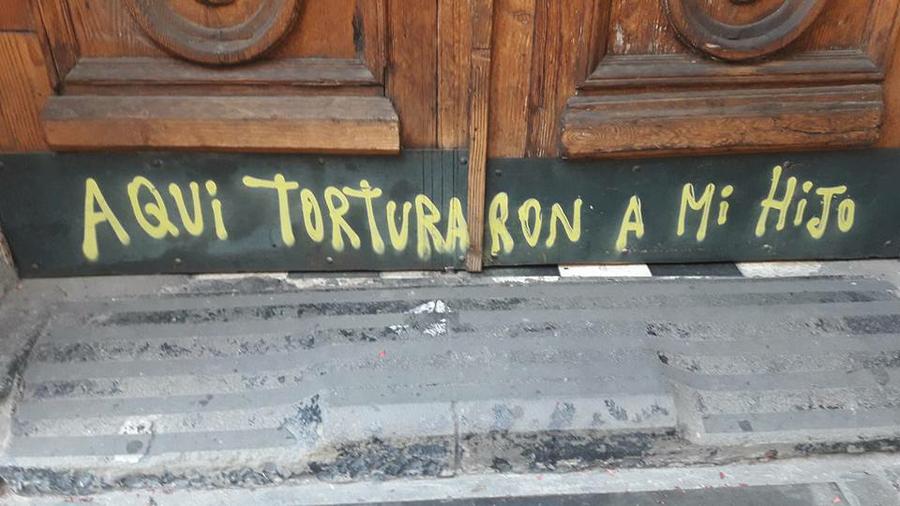 AQUi TORTURARON A Mi HiJO